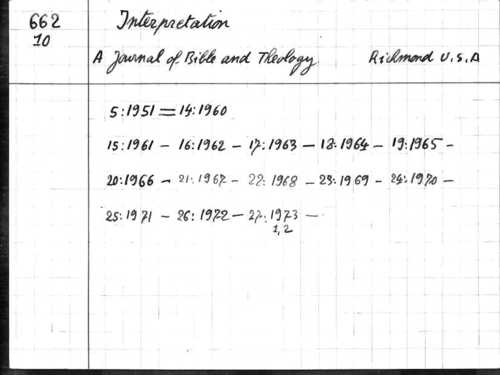 662
10
Interpretation
A Journal of Bible and Theology Richmond U.S.A
5:1951 = 14:1960
15:1961 – 16:1962 – 17:1963 – 18:1964 – 19:1965 –
20:1966 – 21:1967 – 22:1968 – 23:1969 – 24:1970 –
25:1971 – 26:1972 – 27:1973 –
1,2